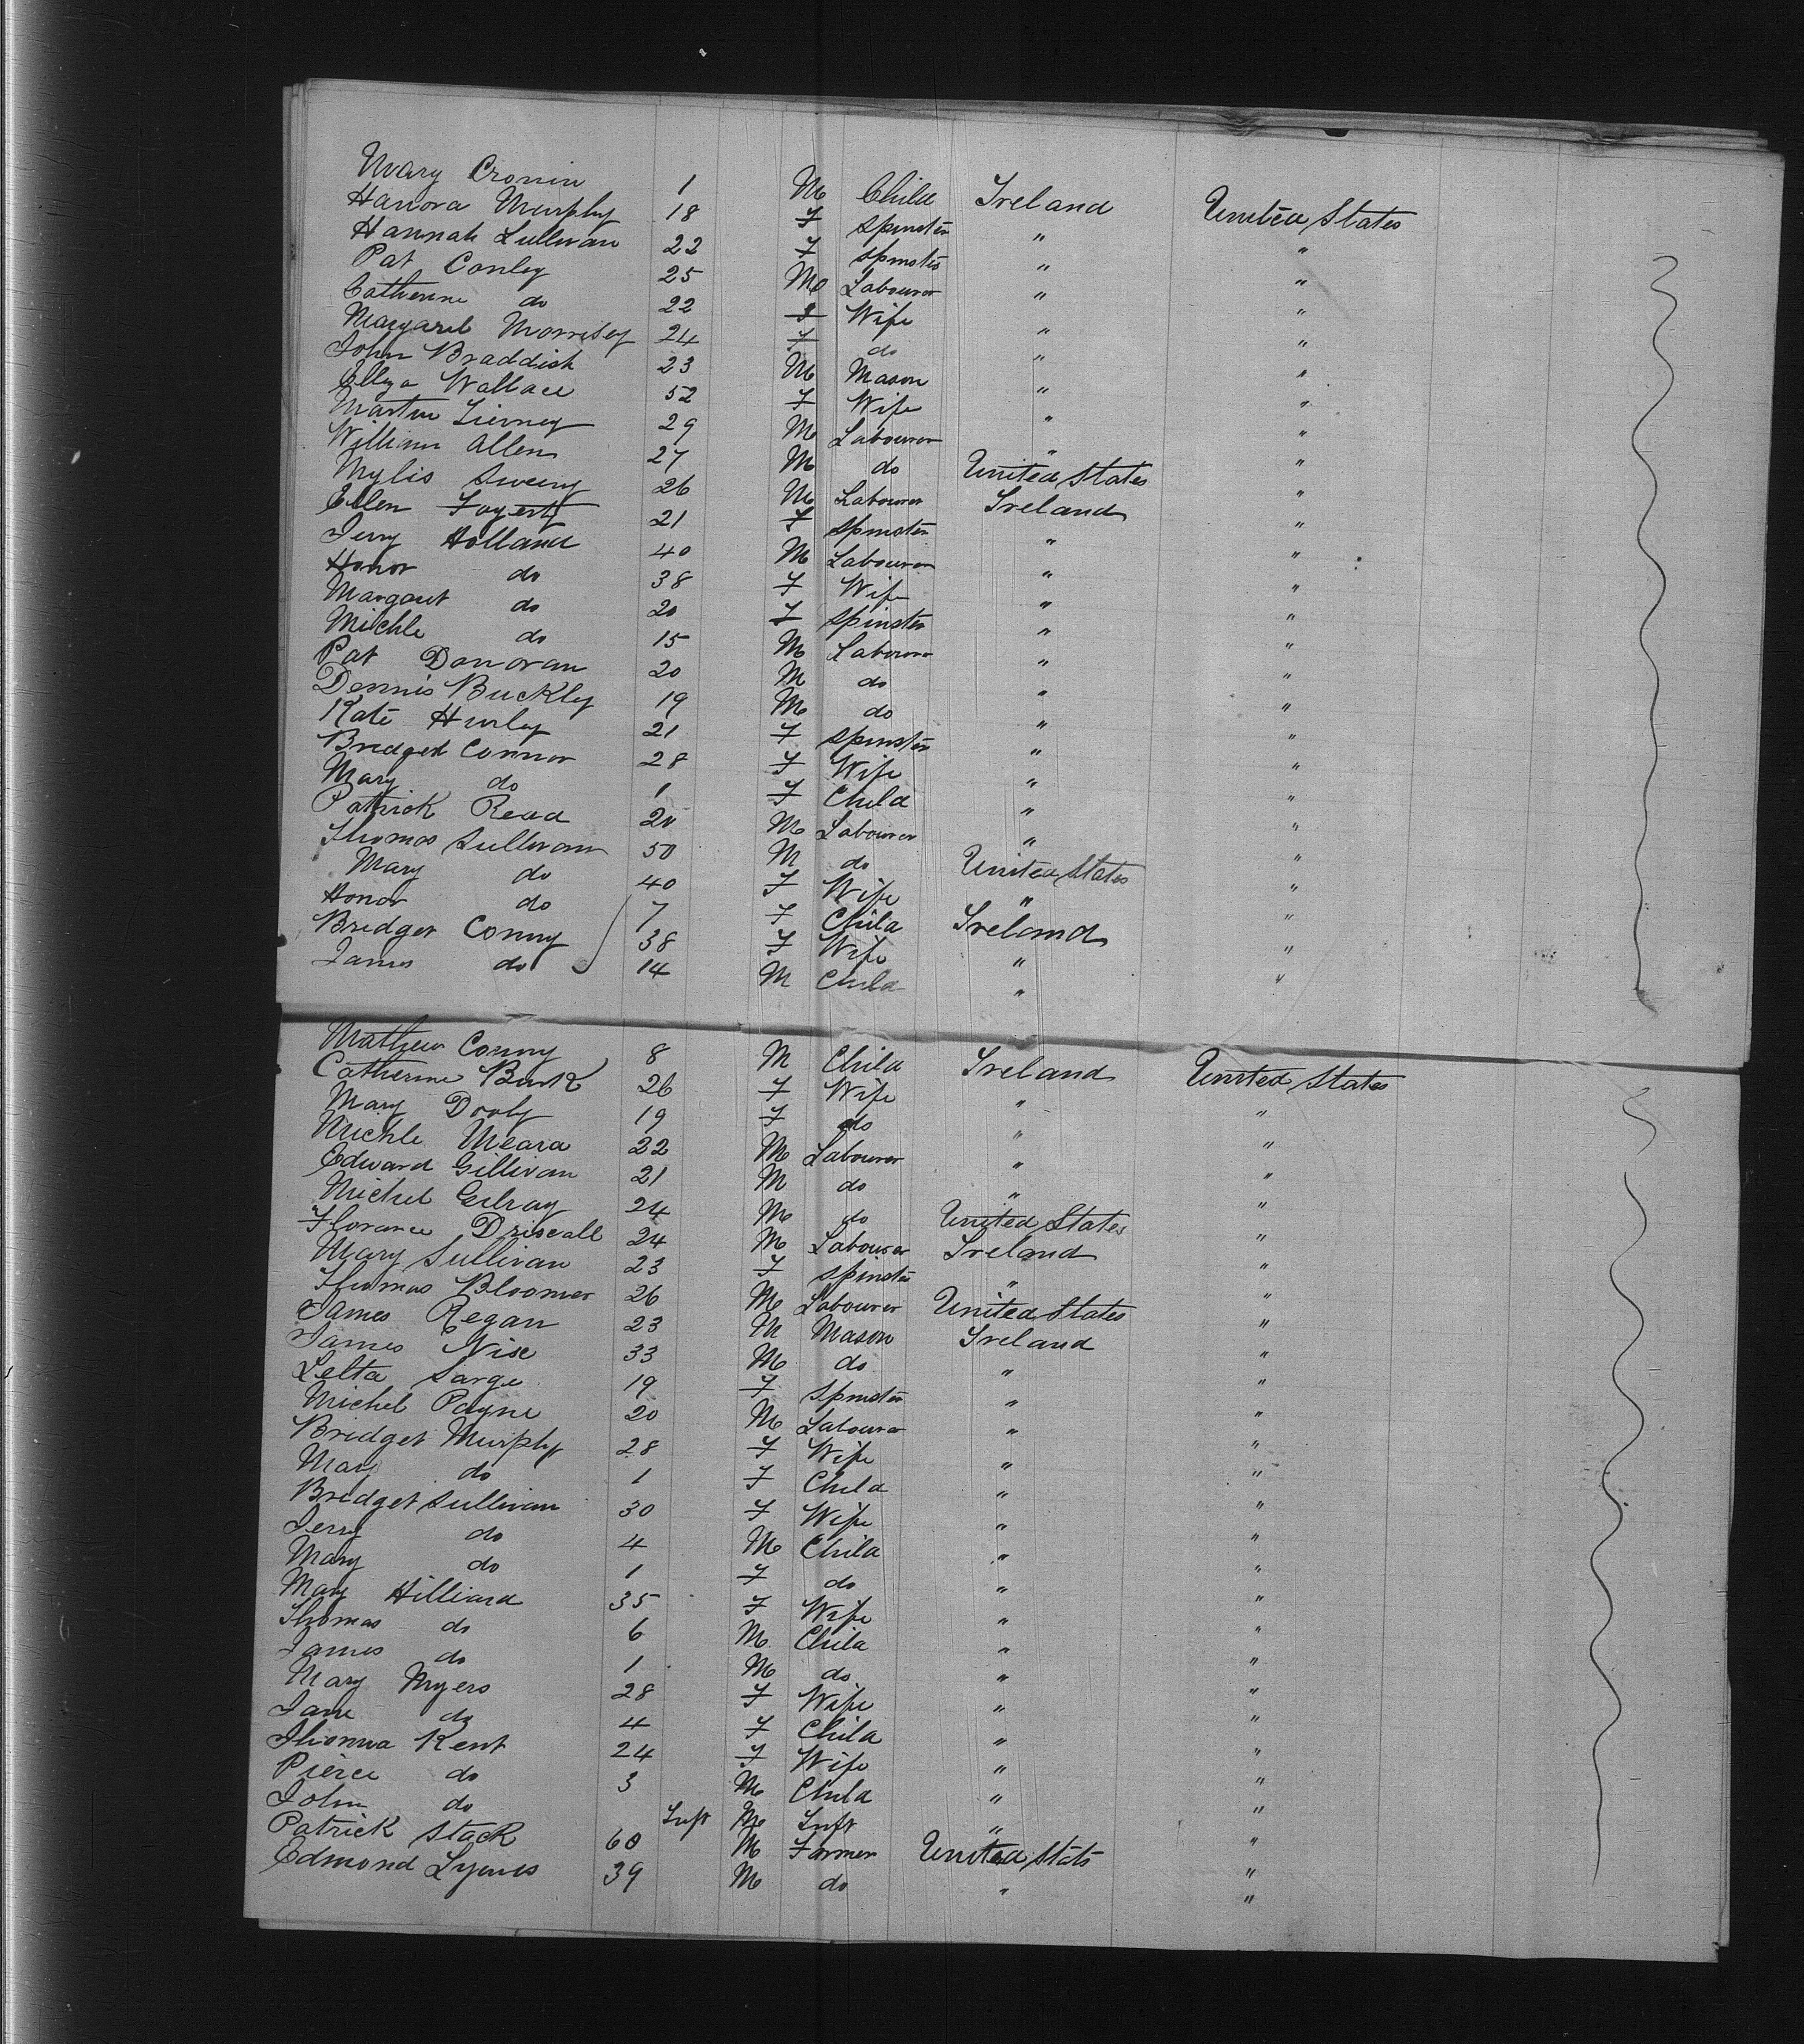 Mary Cronin 1 M Child Ireland United States
Hanora Murphy 18 F Spinster " "
Hannah Sullivan 22 F Spinster " "
Pat Conley 25 M Labourer " "
Catherine do 22 F Wife " "
Margaret Morrisey 24 F do " "
John Braddish 23 M Mason " "
Ellza Wallace 52 F Wife " "
Martin Tierney 29 M Labourer " "
William Allen 27 M do United States "
Mylis Sweeny 26 M Labourer Ireland "
Ellen Fogerty 21 F Spinster " "
Jerry Holland 40 M Labourer " "
Honor do 38 F Wife " "
Margaret do 20 F Spinster " "
Michle do 15 M Labourer " "
Pat Donovan 20 M do " "
Dennis Buckly 19 M do " "
Kate Hurly 21 F Spinster " "
Bridget Connor 28 F Wife " "
Mary do 1 F Child " "
Patrick Read 20 M Labourer " "
Thomas Sullivan 50 M do United States "
Mary do 40 F Wife " "
Honor do 7 F Child Ireland "
Bridget Conny 38 F Wife " "
James do 14 M Child " "
Mathew Conny 8 M Child Ireland United States
Catherine Burk 26 F Wife " "
Mary Dooly 19 F do " "
Michle Meara 22 M Labourer " "
Edward Gillivan 21 M do " "
Michel Gilray 24 M do United States "
Florance Driscall 24 M Labourer Ireland "
Mary Sullivan 23 F Spinster " "
Thomas Bloomer 26 M Labourer United States "
James Regan 23 M Mason Ireland "
James Nise 33 M do " "
Lelta Sarge 19 F Spinster " "
Michel Payne 20 M Labourer " "
Bridget Murphy 28 F Wife " "
Mary do 1 F Child " "
Bridget Sullivan 30 F Wife " "
Jerry do 4 M Child " "
Mary do 1 F do " "
Mary Hilliard 35 F Wife " "
Thomas do 6 M Child " "
James do 1 M do " "
Mary Myers 28 F Wife " "
Jane do 4 F Child " "
Kent 24 F Wife " "
Pierce do 3 M Child " "
John do Inft M Inft " "
Patrick Stack 60 M Farmer United Stats "
Edmond Lyons 39 M do " "